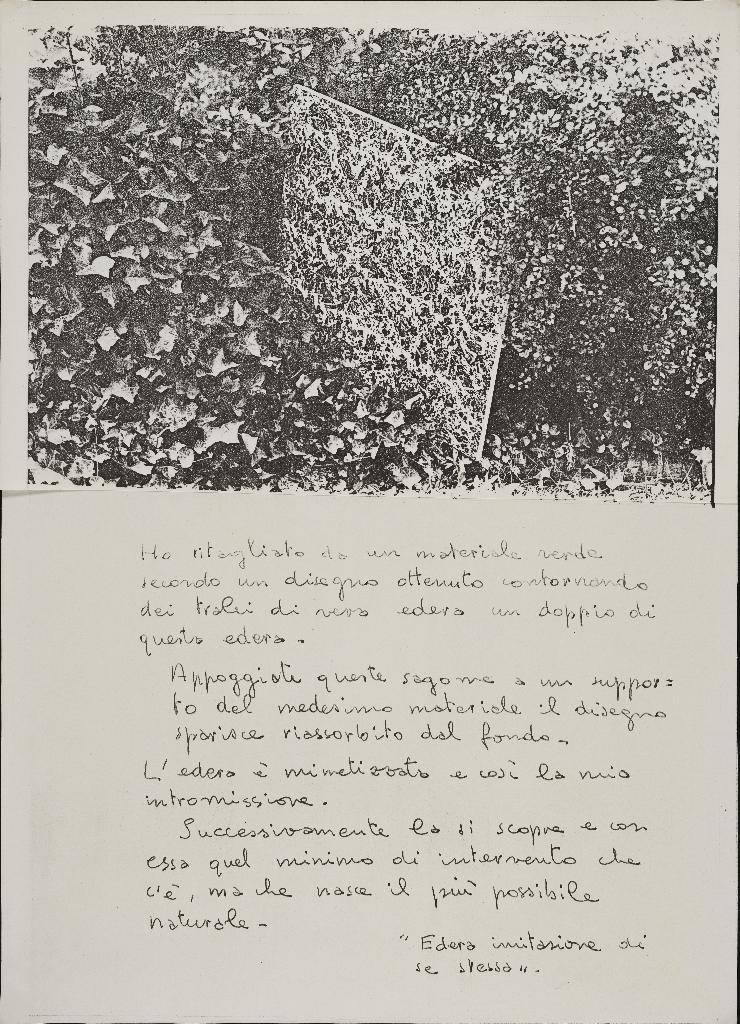 Ho ritagliato da un materiale verde
secondo un disegno ottenuto contornando
dei tralci di vera edera un doppio di
questa edera.
Appoggiate queste sagome a un suppor=
to del medesimo materiale il disegno
sparisce riassorbito dal fondo.
L'edera è mimetizzata e così la mia
intromissione.
Successivamente la si scopre e con
essa quel minimo di intervento che
c'è, ma che nasce il più possibile
naturale.
"Edera imitazione di
se stessa".